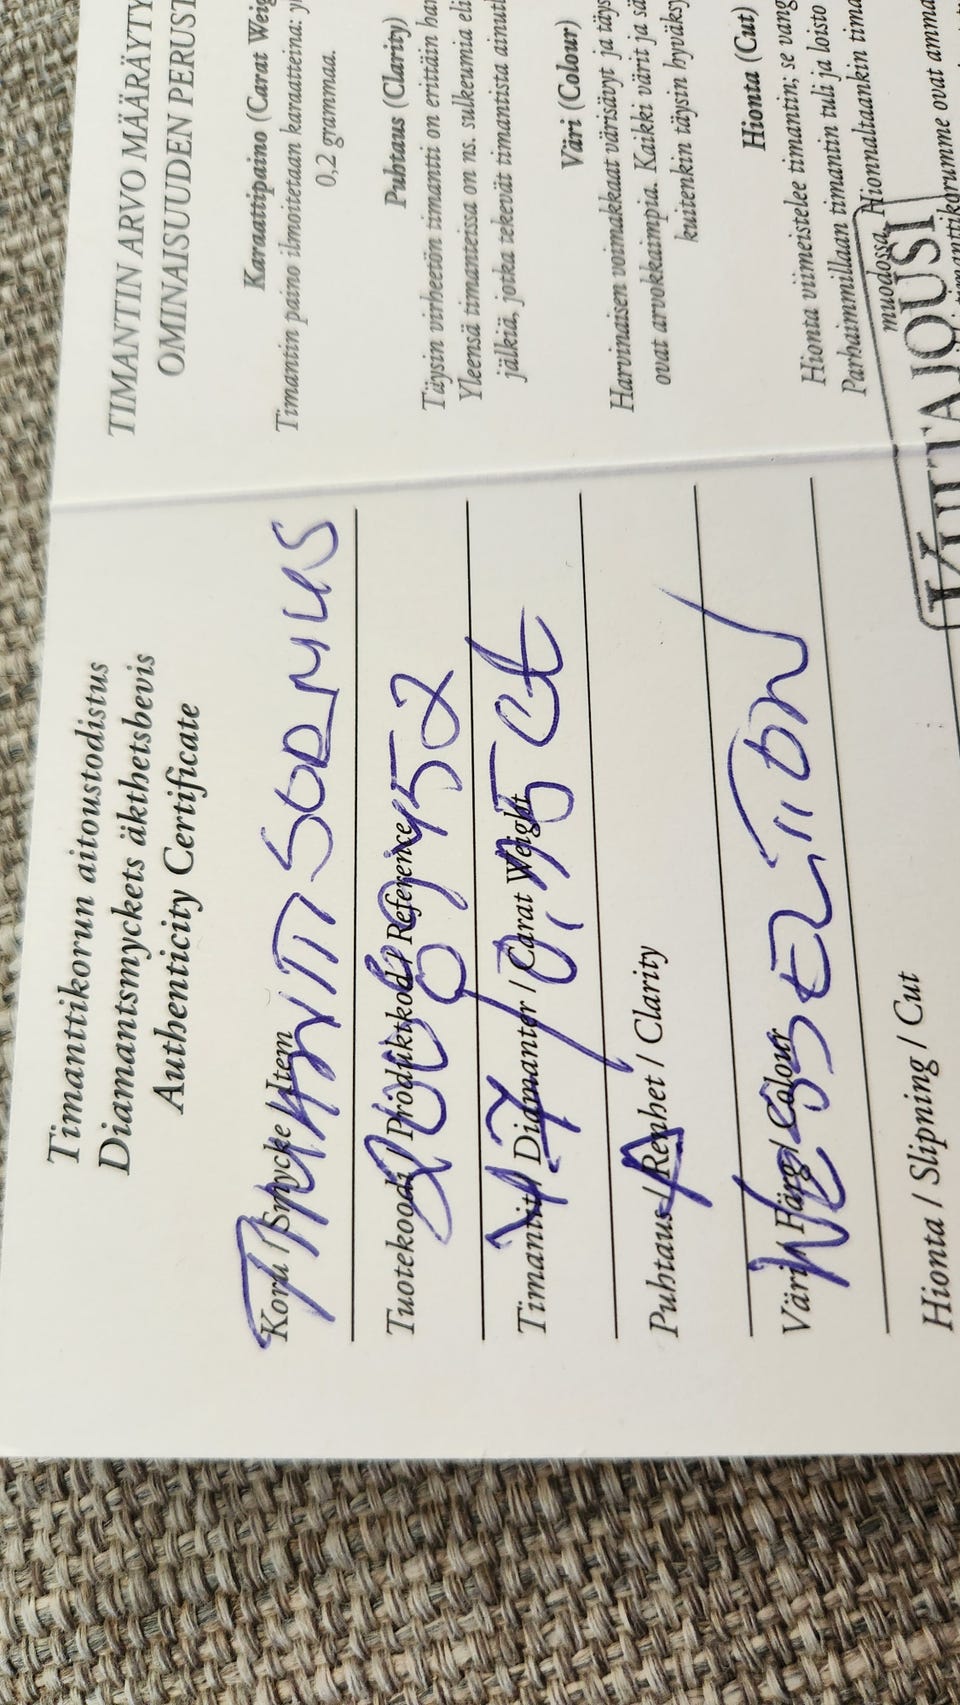 Timanttikorun aitoustodistus
Diamantsmyckets äkthetsbevis
Authenticity Certificate
Koru / Smycke / Item
TIMANTTISORMUS
Tuotekoodi / Produktkod / Reference
Timantit / Diamanter / Carat Weight
0,15 ct
Puhtaus / Renhet / Clarity
Väri / Färg / Colour
WESSELTON
Hionta / Slipning / Cut
TIMANTIN ARVO MÄÄRÄYTY
OMINAISUUDEN PERUST
Karaattipaino (Carat Weig
Timantin paino ilmoitetaan karaatteina:
0,2 grammaa.
Puhtaus (Clarity)
Täysin virheetön timantti on erittäin har
Yleensä timanteissa on ns. sulkeumia eli
jälkiä, jotka tekevät timantista ainutl
Väri (Colour)
Harvinaisen voimakkaat värisävyt ja täys
ovat arvokkaimpia. Kaikki värit ja sä
kuitenkin täysin hyväksy
Hionta (Cut)
Hionta viimeistelee timantin; se vang
Parhaimmillaan timantin tuli ja loisto
muodossa. Hionnaltaankin tima
timanttikorumme ovat amma
KULTAJOUSI